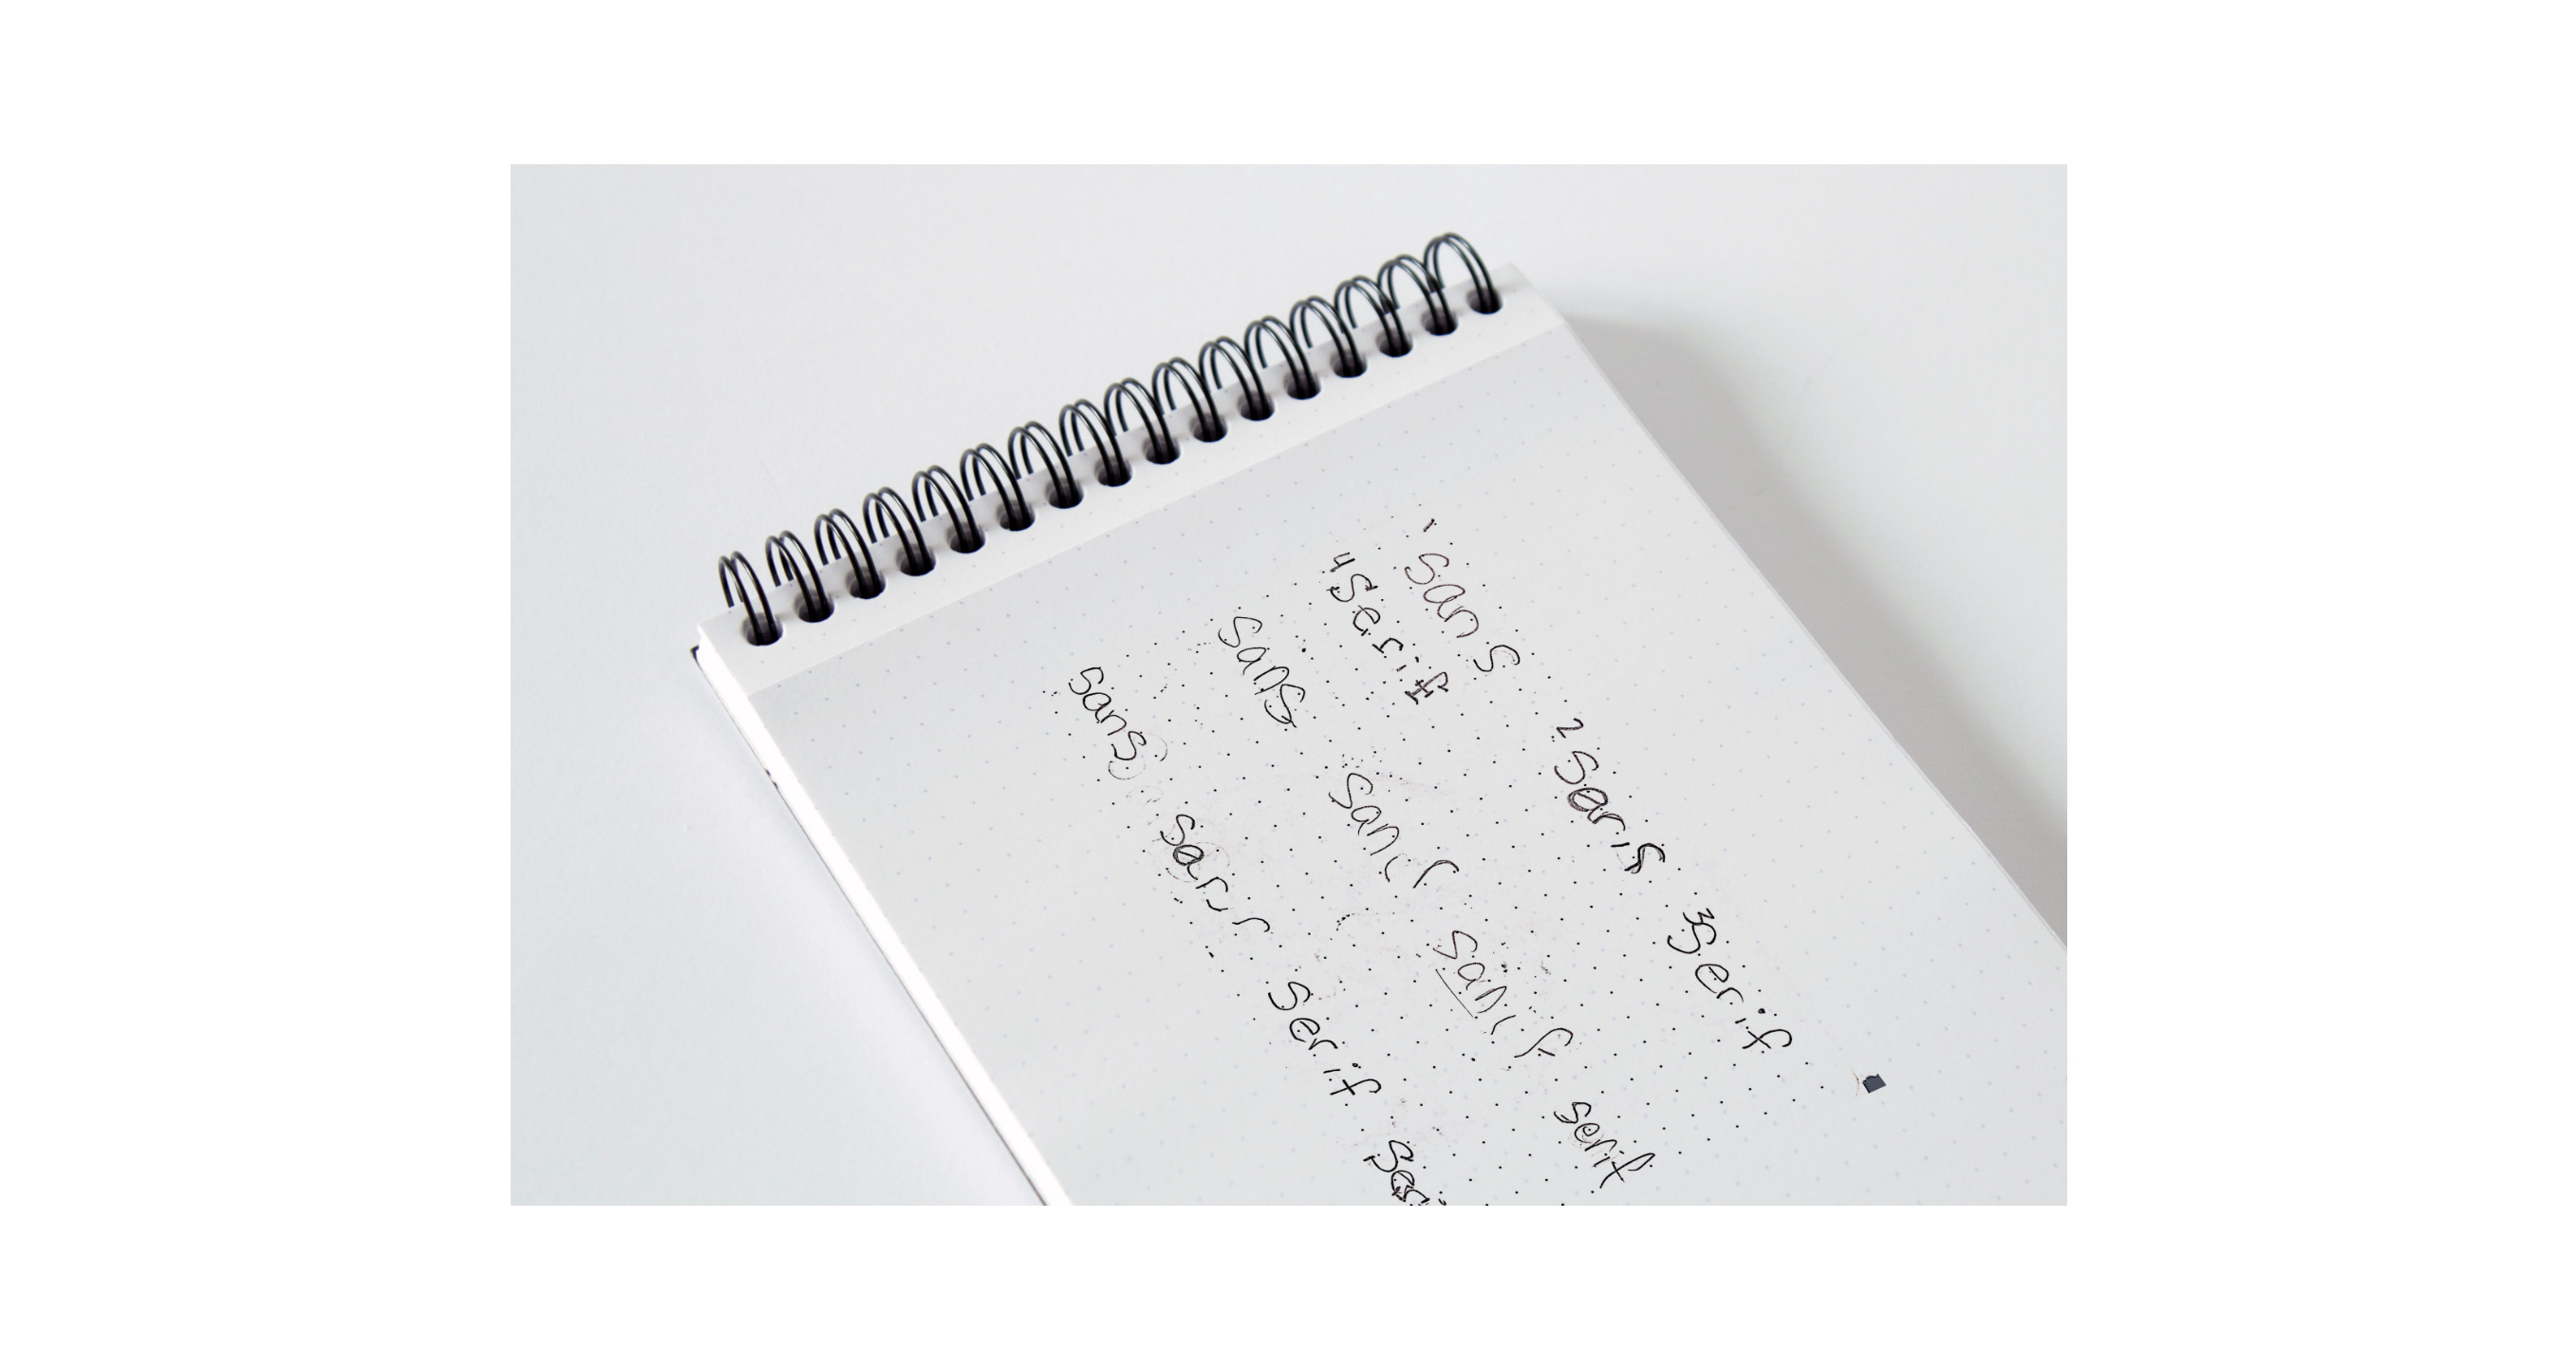 1 sans 2 saris 3 serif
4 serif
sans sanif sanif serif
sans sarif serif seri